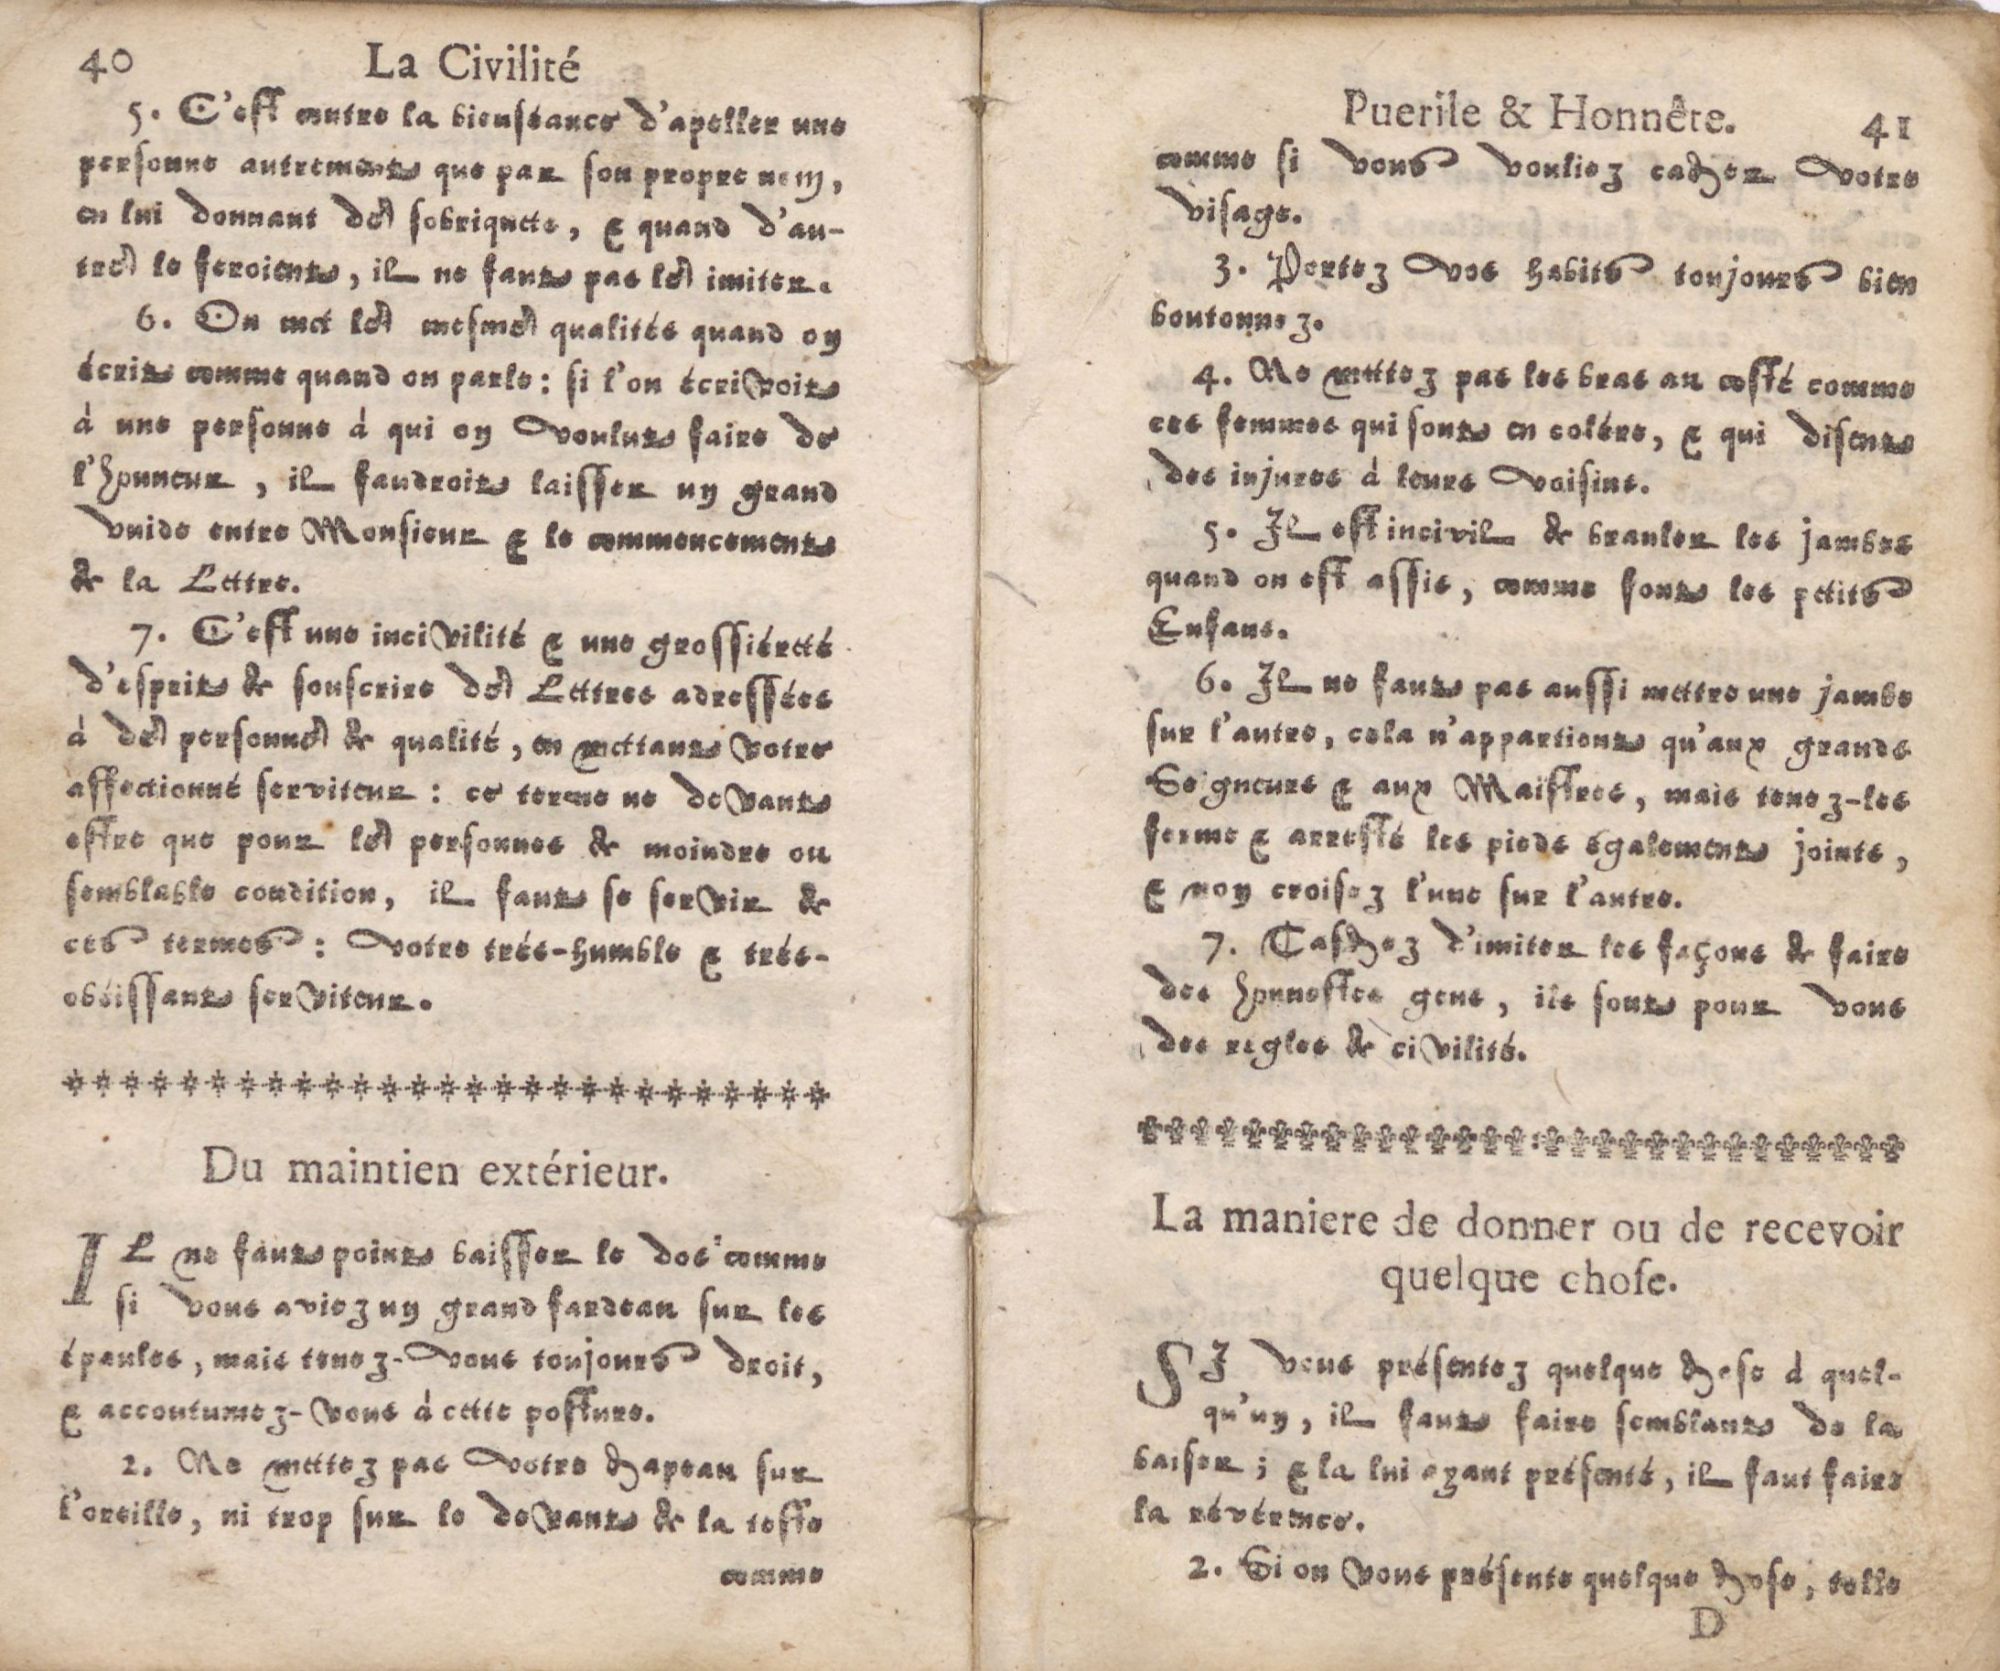 40 La Civilité
5. C'est contre la bienséance d'apeller une
personne autrement que par son propre nom,
en lui donnant des sobriquets, & quand d'au-
tres le feroient, il ne faut pas les imiter.
6. On met les mesmes qualités quand on
écrit comme quand on parle : si l'on écrivoit
à une personne à qui on voulut faire de
l'honneur, il faudroit laisser un grand
vuide entre Monsieur & le commencement
de la Lettre.
7. C'est une incivilité & une grossiéreté
d'esprit de souscrire des Lettres adressées
à des personnes de qualité, en mettant votre
affectionné serviteur : ce terme ne devant
estre que pour les personnes de moindre ou
semblable condition, il faut se servir de
ces termes : votre trés-humble & trés-
obéissant serviteur.
Du maintien extérieur.
IL ne faut point baisser le dos comme
si vous aviez un grand fardeau sur les
épaules, mais tenez-vous toujours droit,
& accoutumez-vous à cette posture.
2. Ne mettez pas votre chapeau sur
l'oreille, ni trop sur le devant de la teste
comme
Puerile & Honnête. 41
comme si vous vouliez cacher votre
visage.
3. Portez vos habits toujours bien
boutonnez.
4. Ne mettez pas les bras au costé comme
ces femmes qui sont en colére, & qui disent
des injures à leurs voisins.
5. Il est incivil de branler les jambes
quand on est assis, comme font les petits
Enfans.
6. Il ne faut pas aussi mettre une jambe
sur l'autre, cela n'appartient qu'aux grands
Seigneurs & aux Maistres, mais tenez-les
ferme & arresté les pieds également joints,
& non croisez l'une sur l'autre.
7. Taschez d'imiter les façons de faire
des honnestes gens, ils sont pour vous
des regles de civilité.
La maniere de donner ou de recevoir
quelque chose.
SI vous présentez quelque chose à quel-
qu'un, il faut faire semblant de la
baiser ; & la lui ayant présenté, il faut faire
la révérence.
2. Si on vous présente quelque chose, telle
D